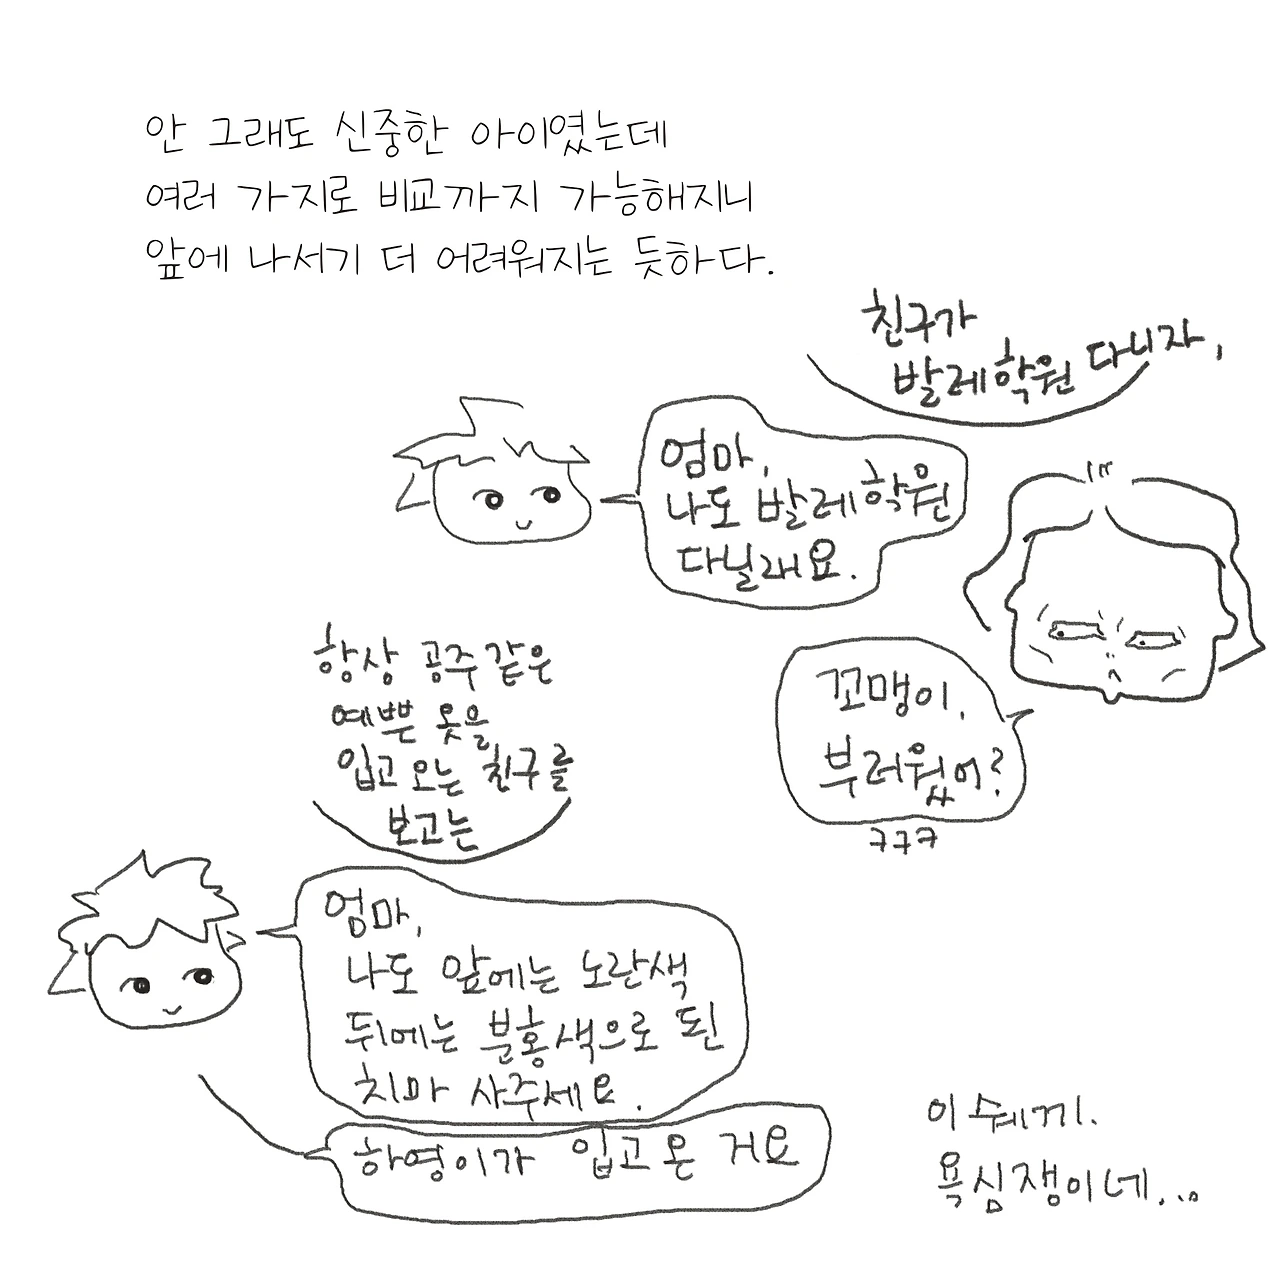 안 그래도 신중한 아이였는데
여러 가지로 비교까지 가능해지니
앞에 나서기 더 어려워지는 듯하다.
친구가
발레학원 다니자,
엄마,
나도 발레학원
다닐래요.
꼬맹이,
부러웠어?
ㅋㅋㅋ
항상 공주같은
예쁜 옷을
입고 오는 친구를
보고는
엄마,
나도 앞에는 노란색
뒤에는 분홍색으로 된
치마 사주세요.
하영이가 입고 온 거요
이 쉐끼.
욕심쟁이네...